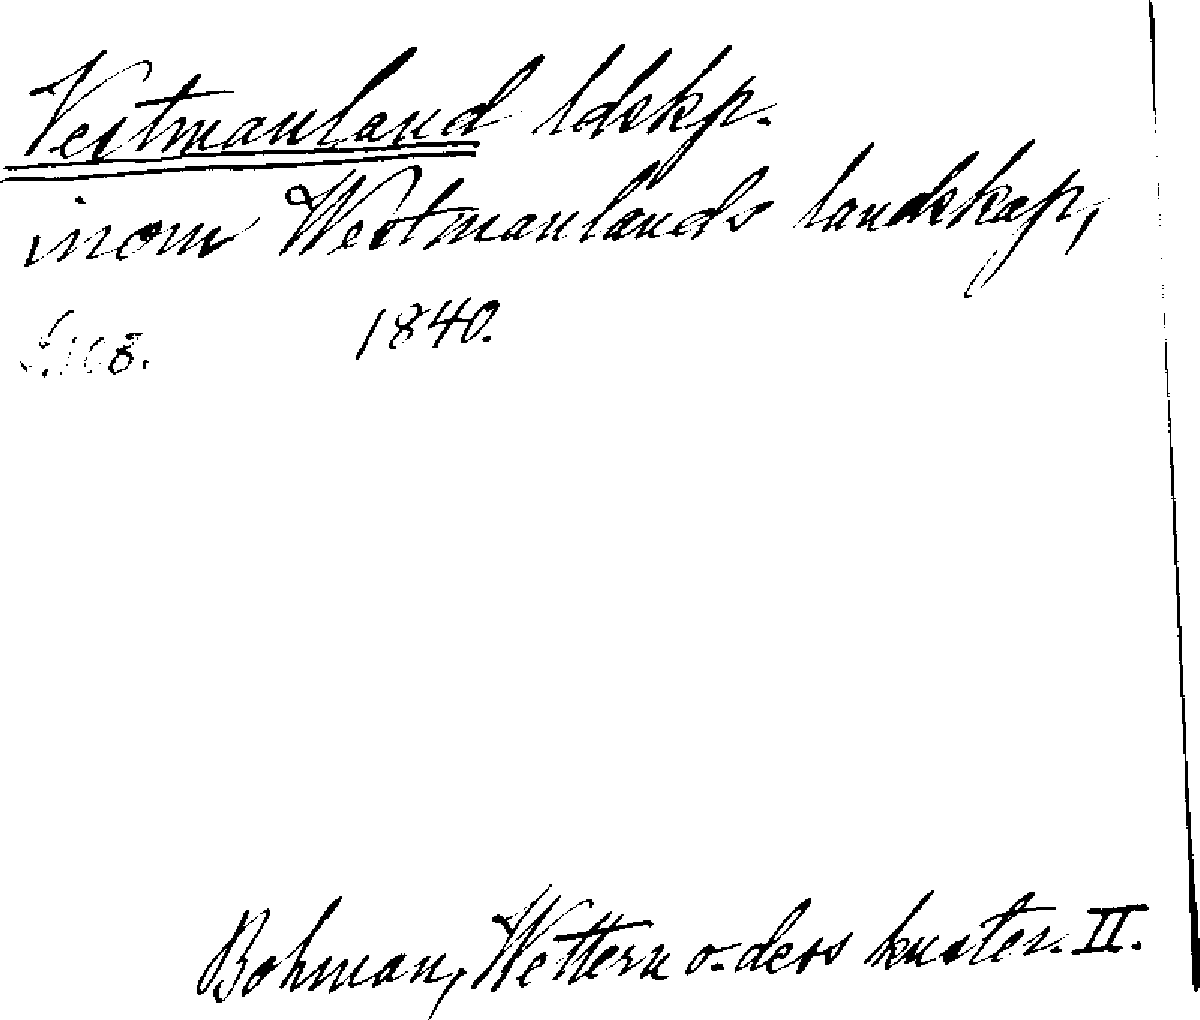 Vestmanland ldskp.
inom Westmanlands landskap,
1840.
Bohman, Wettern o. dess kuster. II.